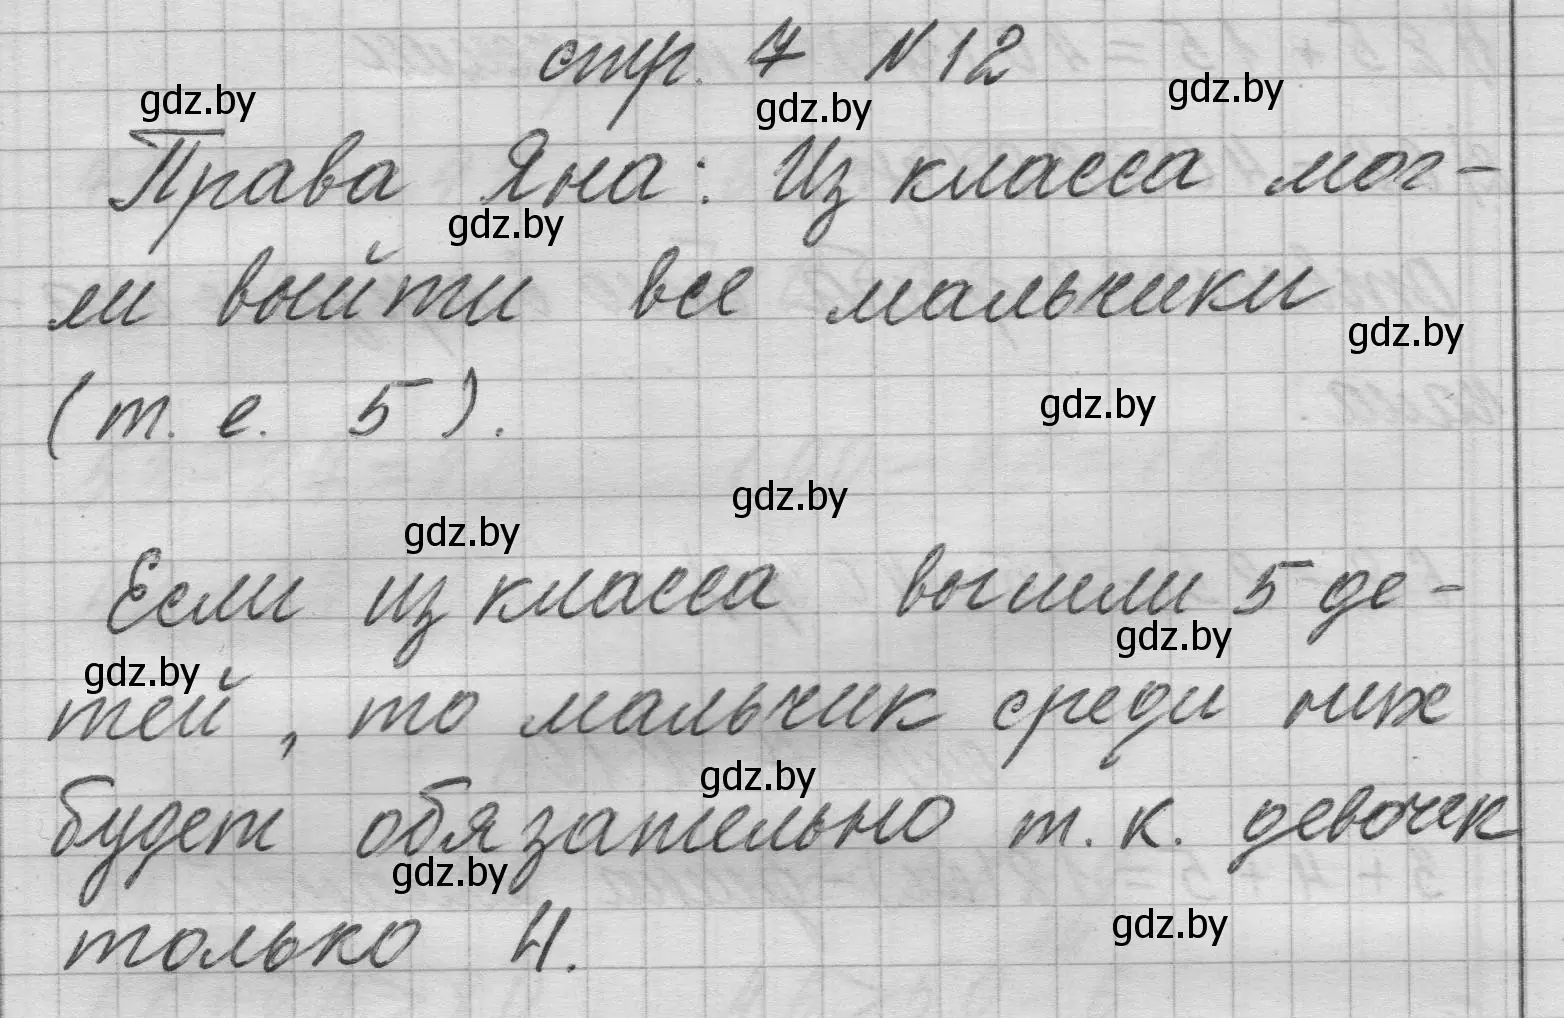 стр. 7 №12
gdz.by gdz.by gdz.by
Права Яна: Из класса мог-
gdz.by
ли выйти все мальчики
gdz.by
(т. е. 5).
gdz.by
gdz.by
gdz.by
Если из класса вышли 5 де-
gdz.by
gdz.by
тей, то мальчик среди них
gdz.by
будет обязательно т. к. девочек
gdz.by
только 4.
gdz.by